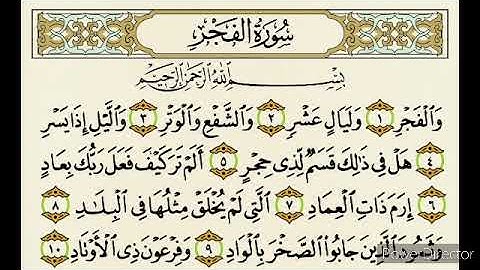 سُورَةُ الفَجْرِ
بِسْمِ اللَّهِ الرَّحْمَٰنِ الرَّحِيمِ
وَالْفَجْرِ ١ وَلَيَالٍ عَشْرٍ ٢ وَالشَّفْعِ وَالْوَتْرِ ٣ وَالَّيْلِ إِذَا يَسْرِ
٤ هَلْ فِي ذَٰلِكَ قَسَمٌ لِّذِي حِجْرٍ ٥ أَلَمْ تَرَ كَيْفَ فَعَلَ رَبُّكَ بِعَادٍ
٦ إِرَمَ ذَاتِ الْعِمَادِ ٧ الَّتِي لَمْ يُخْلَقْ مِثْلُهَا فِي الْبِلَادِ ٨
وَثَمُودَ الَّذِينَ جَابُوا الصَّخْرَ بِالْوَادِ ٩ وَفِرْعَوْنَ ذِي الْأَوْتَادِ ١٠
PowerDirector